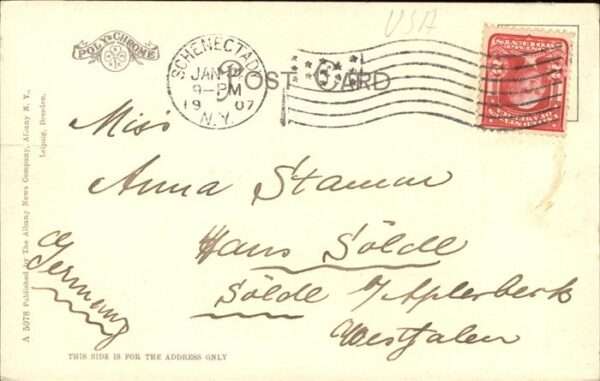 USA
POLY-CHROME
SCHENECTADY
JAN
9-PM
19 07
N.Y.
POST CARD
Miss
Anna Stamm
Haus Sölde
Sölde b/Aplerbeck
Westfalen
Germany
A 5078 Published by The Albany News Company, Albany N. Y.,
Leipzig, Dresden.
THIS SIDE IS FOR THE ADDRESS ONLY